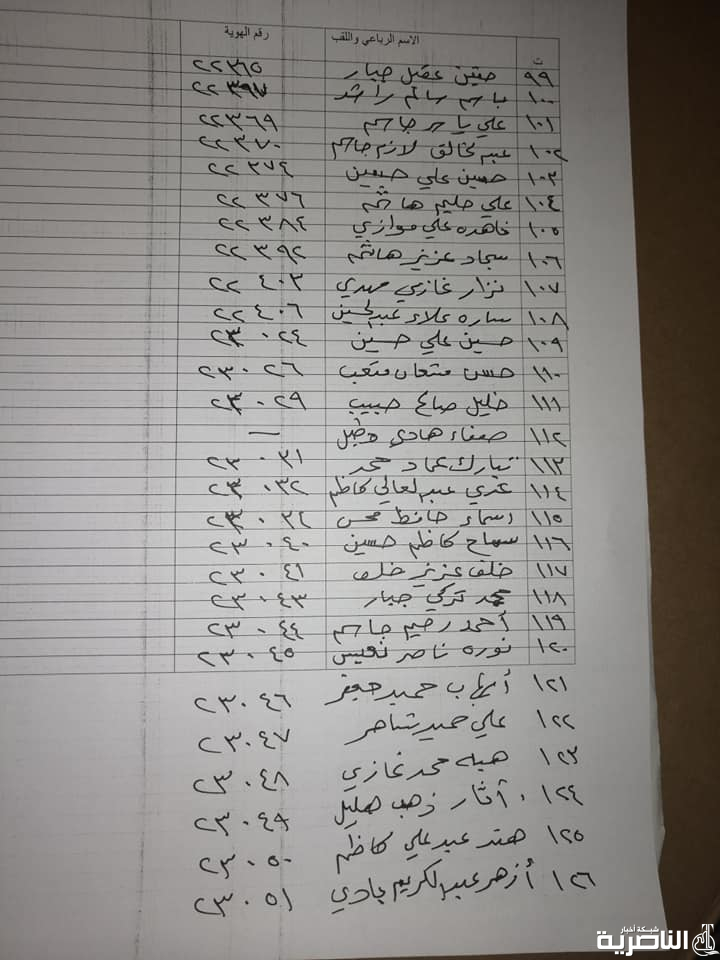 ت الاسم الرباعي واللقب رقم الهوية
٩٩ عقيل جبار ٢٢٣٦٥
١٠٠ باسم سالم راشد ٢٢٣٩٧
١٠١ علي ياسر جاسم ٢٢٣٦٩
١٠٢ عبد الخالق لازم جاسم ٢٢٣٧٠
١٠٣ حسين علي حسين ٢٢٣٧٤
١٠٤ علي حليم هاشم ٢٢٣٧٦
١٠٥ ناهده علي موازي ٢٢٣٨٤
١٠٦ سجاد عزيز هاشم ٢٢٣٩٢
١٠٧ نزار غازي مهدي ٢٢٤٠٣
١٠٨ ساره علاء عبد الحسين ٢٢٤٠٦
١٠٩ حسين علي حسين ٢٣٠٢٤
١١٠ حسن متعب ٢٣٠٢٦
١١١ خليل صالح حبيب ٢٣٠٢٩
١١٢ صفاء هادي —
١١٣ تبارك عماد محمد ٢٣٠٣١
١١٤ عبد العالي كاظم ٢٣٠٣٢
١١٥ اسماء حافظ محسن
١١٦ سماح كاظم حسين ٢٣٠٤٠
١١٧ خلف عزيز خلف ٢٣٠٤١
١١٨ محمد تركي جبار ٢٣٠٤٣
١١٩ أحمد رحيم جاسم ٢٣٠٤٤
١٢٠ نوره ناصر نعيس ٢٣٠٤٥
١٢١ أيهاب حميد جعفر ٢٣٠٤٦
١٢٢ علي حميد شاهر ٢٣٠٤٧
١٢٣ هبه محمد غازي ٢٣٠٤٨
١٢٤ أثار ذهب هليل ٢٣٠٤٩
١٢٥ هند عبد علي كاظم ٢٣٠٥٠
١٢٦ أزهر عبد الكريم بادي ٢٣٠٥١
شبكة أخبار
الناصرية